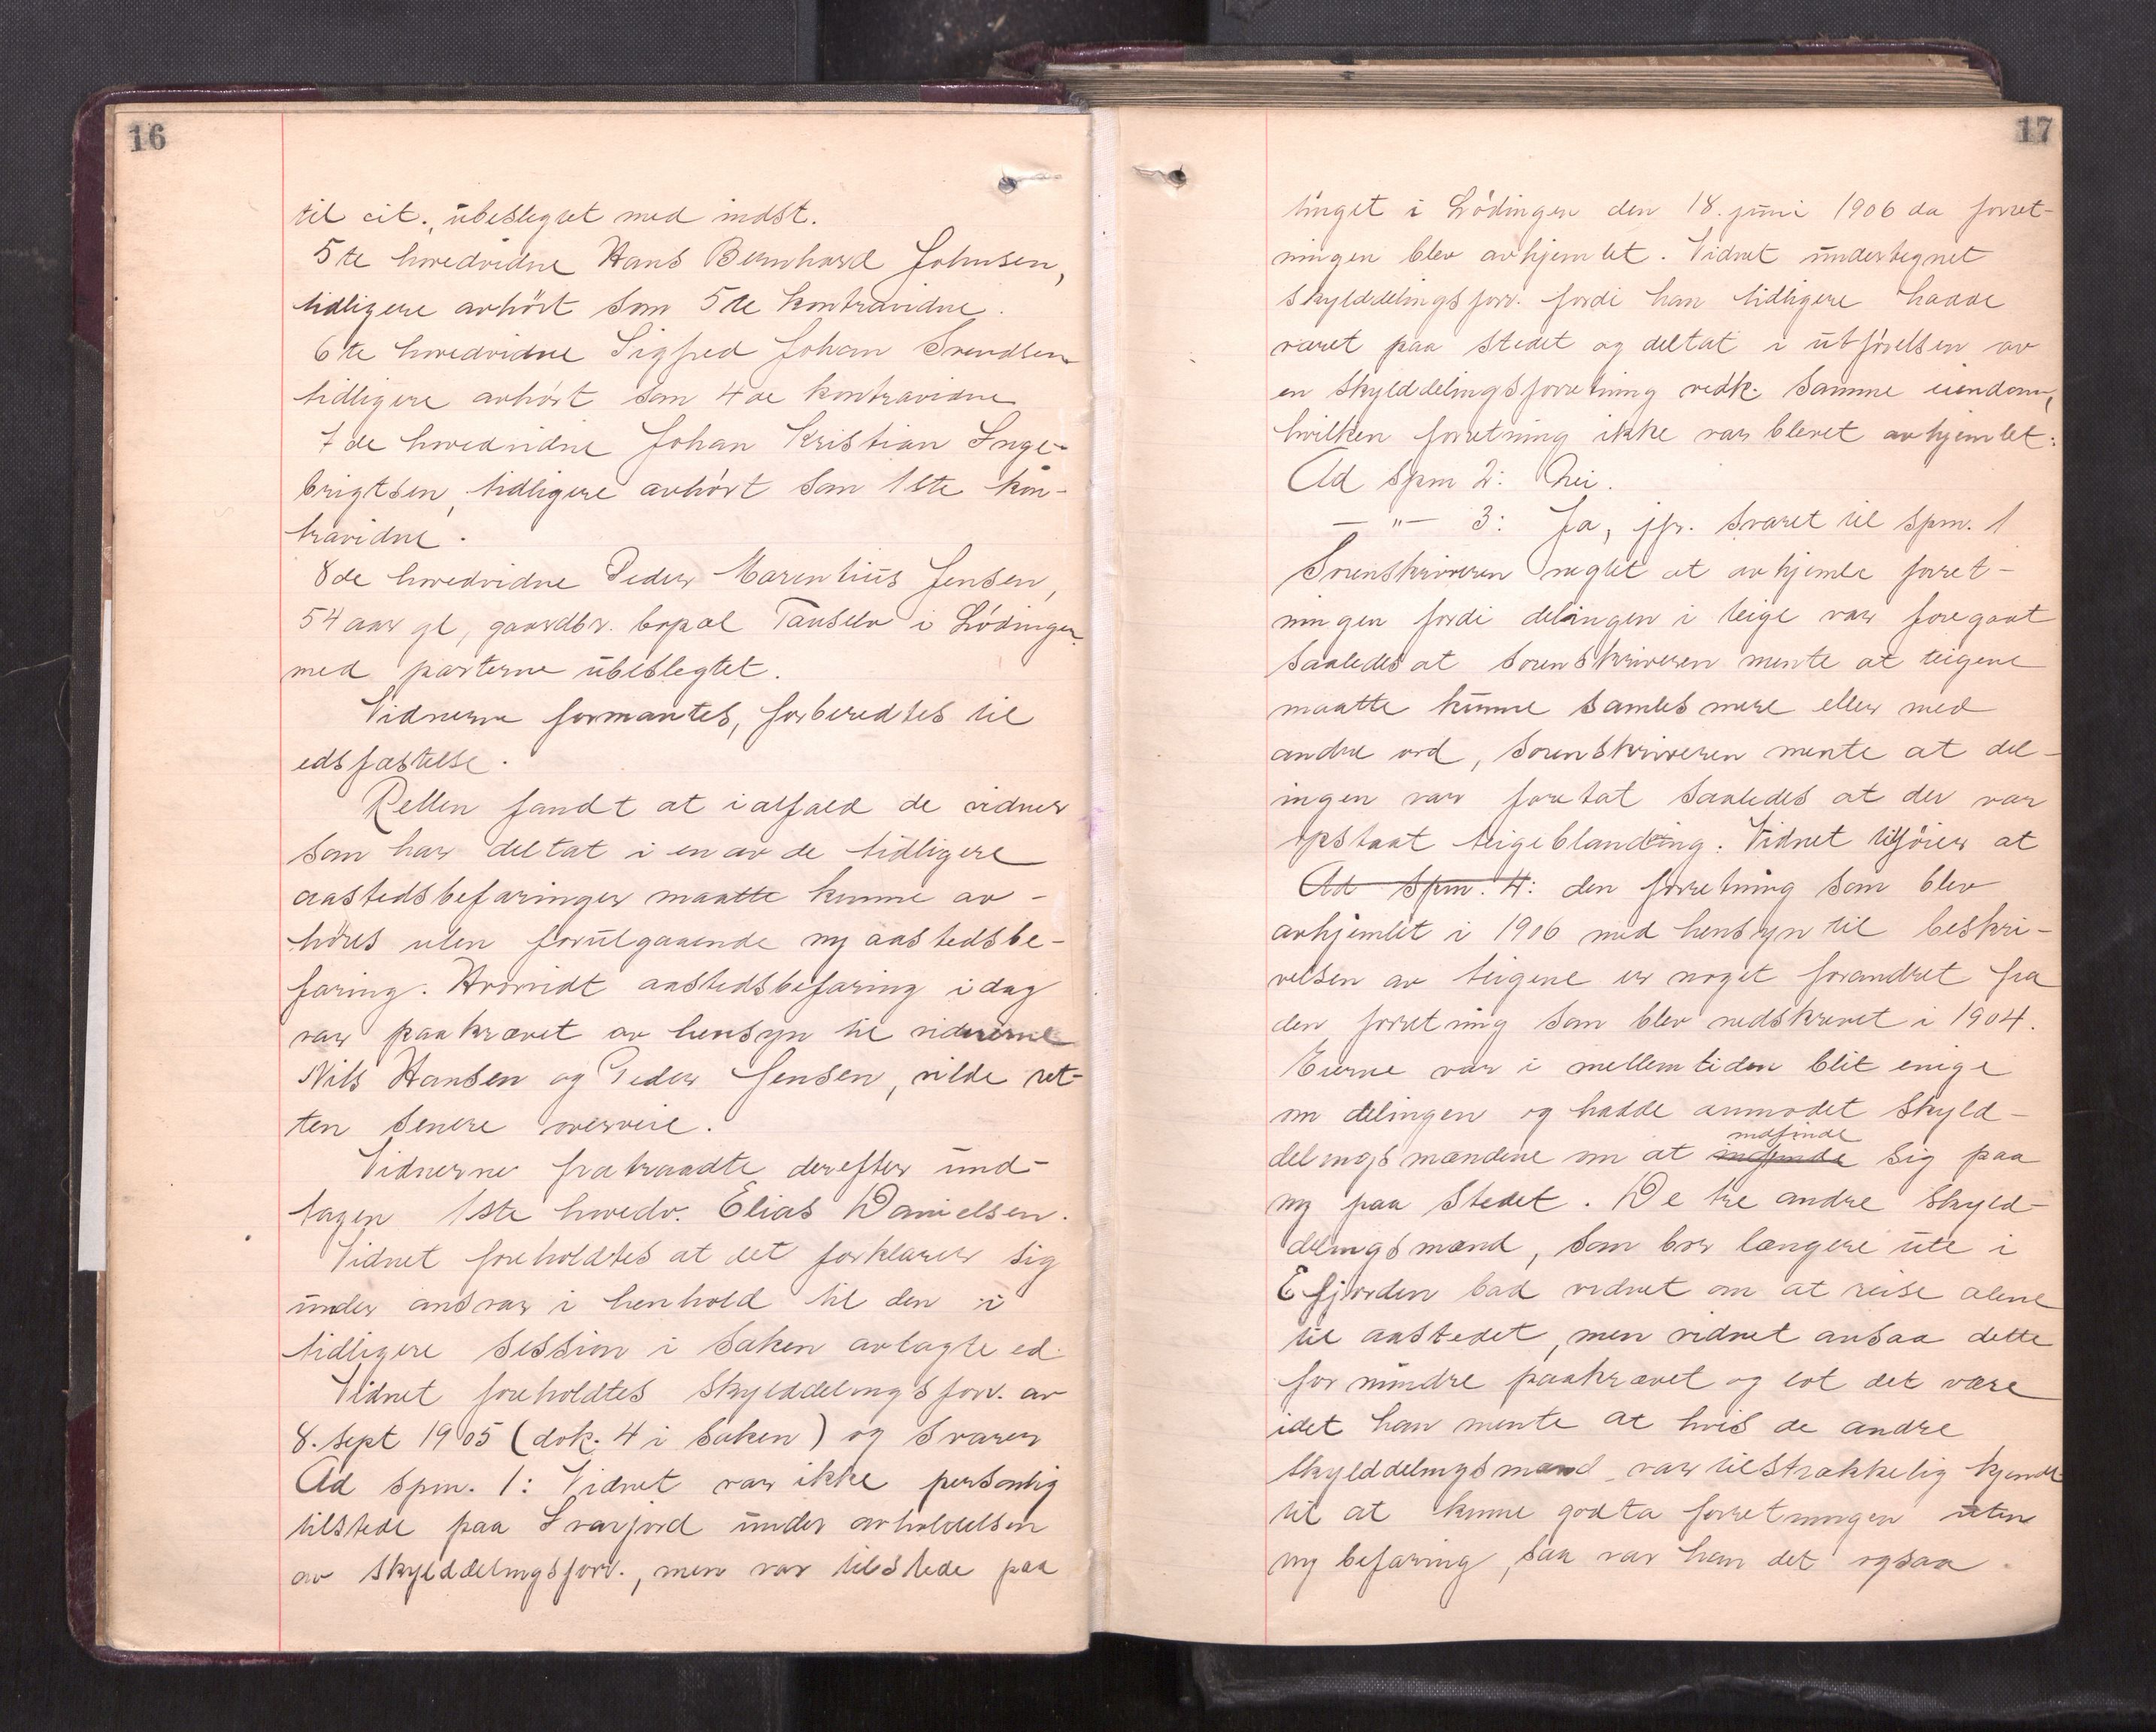 16
til cit., ubeslegtet med indst.
5te hovedvidne Hans Bernhard Johnsen,
tidligere avhört som 5te kontravidne.
6te hovedvidne Sigfred Johan Svendsen
tidligere avhört som 4de kontravidne
7de hovedvidne Johan Kristian Inge-
brigtsen, tidligere avhört som 1ste kon-
travidne.
8de hovedvidne Peder Marentius Jensen,
54 aar gl, gaardbr. bopæl Tanselv i Lödingen
med parterne ubeslegtet.
Vidnerne formantes, forberedtes til
edsfæstelse.
Retten fandt at ialfald de vidner
som har deltat i en av de tidligere
aastedsbefaringer maatte kunne av-
höres uten forutgaaende ny aastedsbe-
faring. Hvorvidt aastedsbefaring idag
var paakrævet av hensyn til vidnerne
Nils Hansen og Peder Jensen, vilde ret-
ten senere overveie.
Vidnerne fratraadte derefter und-
tagen 1ste hovedv. Elias Danielsen.
Vidnet foreholdtes at det forklarer sig
under ansvar i henhold til den i
tidligere session i saken avlagte ed.
Vidnet foreholdtes skylddelingsforr. av
8. sept 1905 (dok. 4 i saken) og svarer
Ad spm. 1: Vidnet var ikke personlig
tilstede paa Svarfjord under avholdelsen
av skylddelingsforr., men var tilstede paa
17
tinget i Lödingen den 18. juni 1906 da forret-
ningen blev avhjemlet. Vidnet undertegnet
skylddelingsforr. fordi han tidligere hadde
været paa stedet og deltat i utförelsen av
en skylddelingsforretning vedk. samme eiendom,
hvilken forretning ikke var blevet avhjemlet.
Ad spm 2: Nei.
— " — 3: Ja, jfr. svaret til spm. 1
Sorenskriveren negtet at avhjemle forret-
ningen fordi delingen i teige var foregaat
saaledes at sorenskriveren mente at teigene
maatte kunne samles mere eller med
andre ord, sorenskriveren mente at del-
ingen var foretat saaledes at der var
opstaat teigeblanding. Vidnet tilföier at
Ad spm. 4: den forretning som blev
avhjemlet i 1906 med hensyn til beskri-
velsen av teigene er noget forandret fra
den forretning som blev nedskrevet i 1904.
Eierne var i mellemtiden blit enige
om delingen og hadde anmodet skyld-
indfinde
delingsmændene om at indfinde sig paa
ny paa stedet. De tre andre skyld-
delingsmænd, som bor længere ute i
Efjorden bad vidnet om at reise alene
til aastedet, men vidnet ansaa dette
for mindre paakrævet og lot det være
idet han mente at hvis de andre
skylddelingsmænd var tilstrækkelig kjendt
til at kunne godta forretningen uten
ny befaring, saa var han det ogsaa.